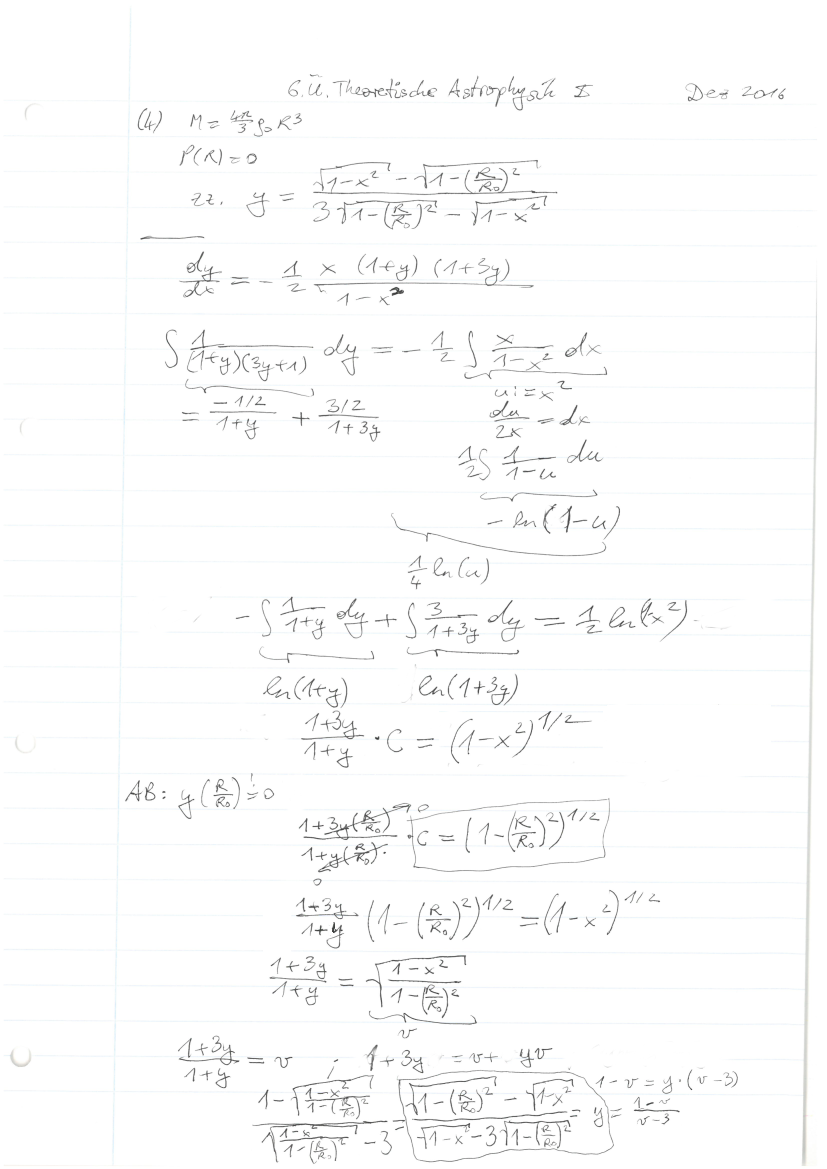 6. Ü. Theoretische Astrophysik I Dez 2016
(4) M = 4π/3 ρ₀ R³
P(R) = 0
zz. y = (√(1-x²) - √(1-(R/R₀)²)) / (3√(1-(R/R₀)²) - √(1-x²))
dy/dx = - 1/2 x (1+y) (1+3y) / (1-x²)
∫ 1/((1+y)(3y+1)) dy = - 1/2 ∫ x/(1-x²) dx
u := x²
= (-1/2)/(1+y) + (3/2)/(1+3y)
du/2x = dx
1/2 ∫ 1/(1-u) du
- ln(1-u)
1/4 ln(u)
- ∫ 1/(1+y) dy + ∫ 3/(1+3y) dy = 1/2 ln(1-x²)
ln(1+y) ln(1+3y)
(1+3y)/(1+y) · C = (1-x²)^1/2
AB: y(R/R₀) != 0
(1+3y(R/R₀))/(1+y(R/R₀)) · C = (1-(R/R₀)²)^1/2
(1+3y)/(1+y) (1-(R/R₀)²)^1/2 = (1-x²)^1/2
(1+3y)/(1+y) = √((1-x²)/(1-(R/R₀)²))
v
(1+3y)/(1+y) = v ; 1+3y = v + yv
1-v = y·(v-3)
(1-√((1-x²)/(1-(R/R₀)²))) / (√((1-x²)/(1-(R/R₀)²)) - 3) = (√(1-(R/R₀)²) - √(1-x²)) / (√(1-x²) - 3√(1-(R/R₀)²)) = y = (1-v)/(v-3)